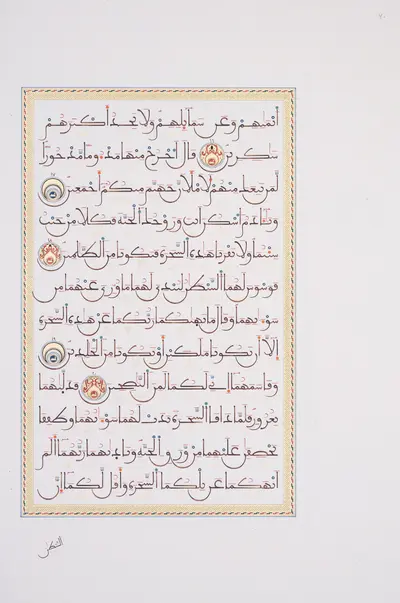 أيمنهم وعن شمايلهم ولا تجد أكثرهم
شكرين قال اخرج منها مذءوما مدحورا
لمن تبعك منهم لأملأن جهنم منكم أجمعين
ويادم اسكن أنت وزوجك الجنة فكلا من حيث
شئتما ولا تقربا هذه الشجرة فتكونا من الظلمين
فوسوس لهما الشيطن ليبدي لهما ما وري عنهما من
سوءتهما وقال ما نهيكما ربكما عن هذه الشجرة
إلا أن تكونا ملكين أو تكونا من الخلدين
وقاسمهما إني لكما لمن النصحين فدليهما
بغرور فلما ذاقا الشجرة بدت لهما سوءتهما وطفقا
يخصفن عليهما من ورق الجنة وناديهما ربهما ألم
أنهكما عن تلكما الشجرة وأقل لكما إن
الشيطن